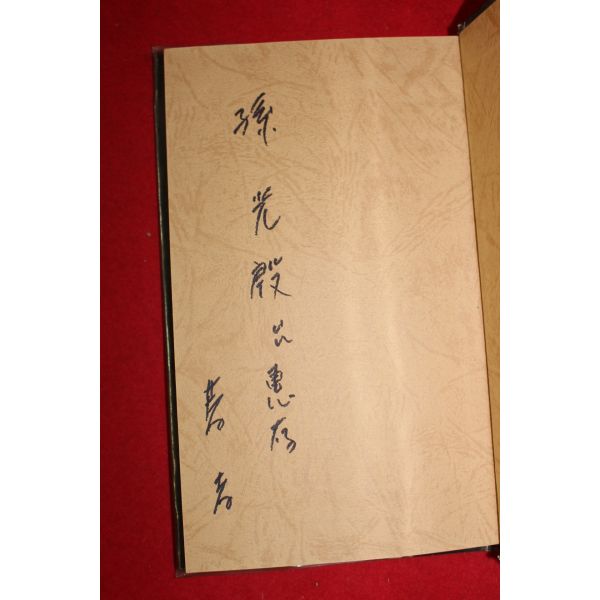 孫光殷公惠存
著者